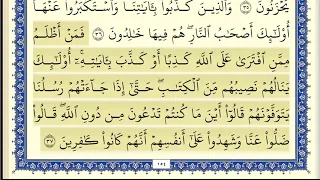 يَحْزَنُونَ ٣٥ وَالَّذِينَ كَذَّبُوا بِآيَاتِنَا وَاسْتَكْبَرُوا عَنْهَا
أُولَٰئِكَ أَصْحَابُ النَّارِ ۖ هُمْ فِيهَا خَالِدُونَ ٣٦ فَمَنْ أَظْلَمُ
مِمَّنِ افْتَرَىٰ عَلَى اللَّهِ كَذِبًا أَوْ كَذَّبَ بِآيَاتِهِ ۚ أُولَٰئِكَ
يَنَالُهُمْ نَصِيبُهُم مِّنَ الْكِتَابِ ۖ حَتَّىٰ إِذَا جَاءَتْهُمْ رُسُلُنَا
يَتَوَفَّوْنَهُمْ قَالُوا أَيْنَ مَا كُنتُمْ تَدْعُونَ مِن دُونِ اللَّهِ ۖ قَالُوا
ضَلُّوا عَنَّا وَشَهِدُوا عَلَىٰ أَنفُسِهِمْ أَنَّهُمْ كَانُوا كَافِرِينَ ٣٧
١٥٤